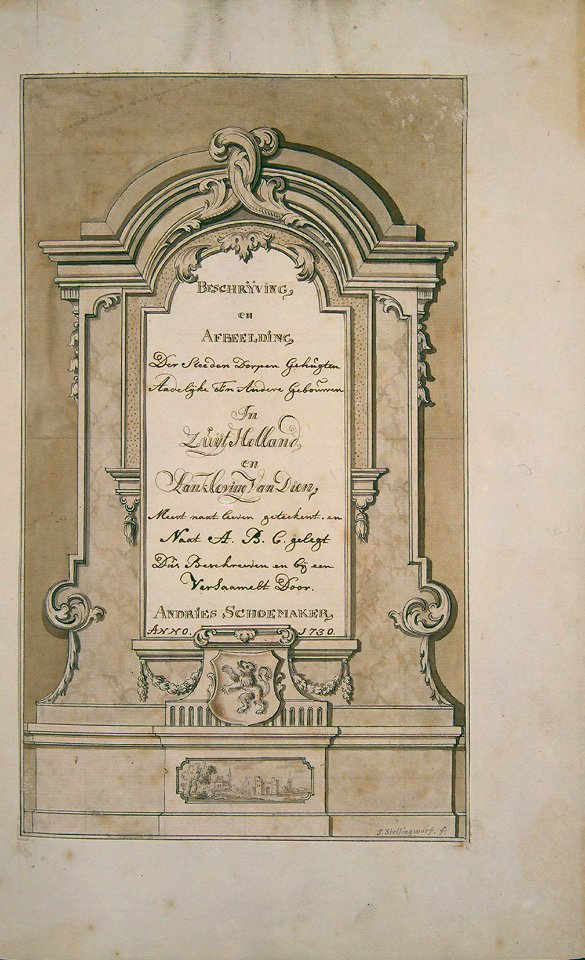 Beschrÿving,
en
Afbeelding,
Der Steeden Dorpen Gehúgten
Aadelijke En Andere Geboúwen
In
Zúÿt Holland,
en
Van Dien,
Meest naat leeven geteekent. en
Naat A. B. C. gelegt
Dús Beschreeven en bij een
Versaamelt Door.
Andries Schoemaker,
Anno. 1730.
J. Stellingwerf. f.